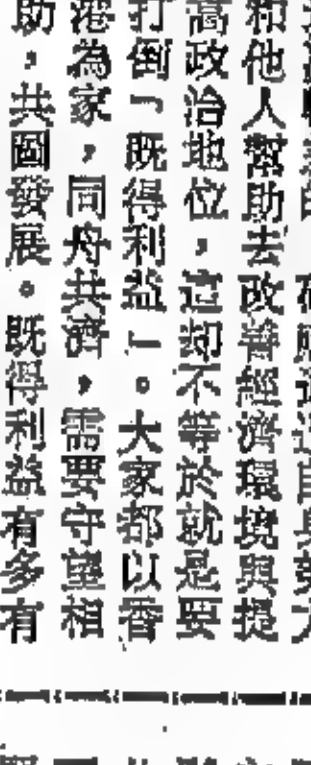 和他人幫助去改善經濟環境與提
高政治地位，這却不等於就是要
打倒「既得利益」。大家都以香
港為家，同舟共濟，需要守望相
助，共圖發展。既得利益有多有